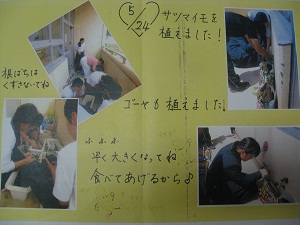 5/24
サツマイモを
植えました!
根ばちは
くずさないでね
ゴーヤも植えました。
ホホホ
早く大きくなってね
食べてあげるから♪